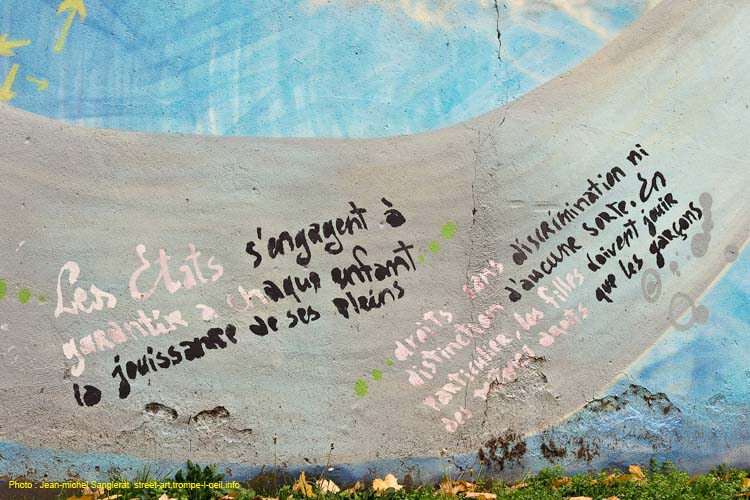 Les États s'engagent à
garantir à chaque enfant
la jouissance de ses pleins
droits sans discrimination ni
distinction d'aucune sorte. En
particulier, les filles doivent jouir
des mêmes droits que les garçons
Photo : Jean-michel Sanglerat street-art.trompe-l-oeil.info